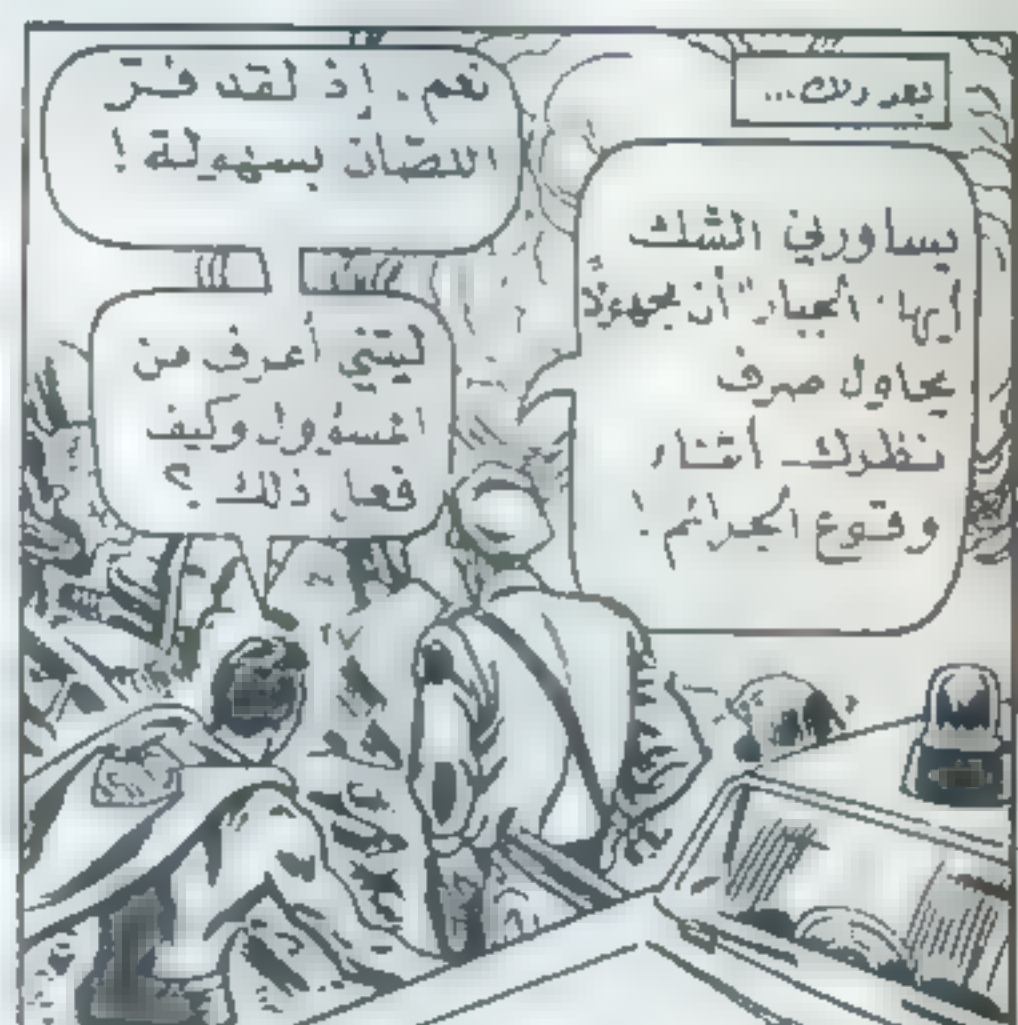 بعد ذلك...
يساورني الشك
أيها "الجبار" أن مجهولاً
يحاول صرف
نظرك أثناء
وقوع الجرائم!
نعم. إذ لقد فرّ
اللصّان بسهولة!
ليتني أعرف من
المسؤول وكيف
فعل ذلك؟